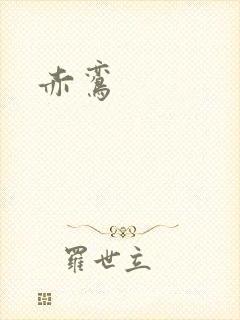 赤鸞
羅世立